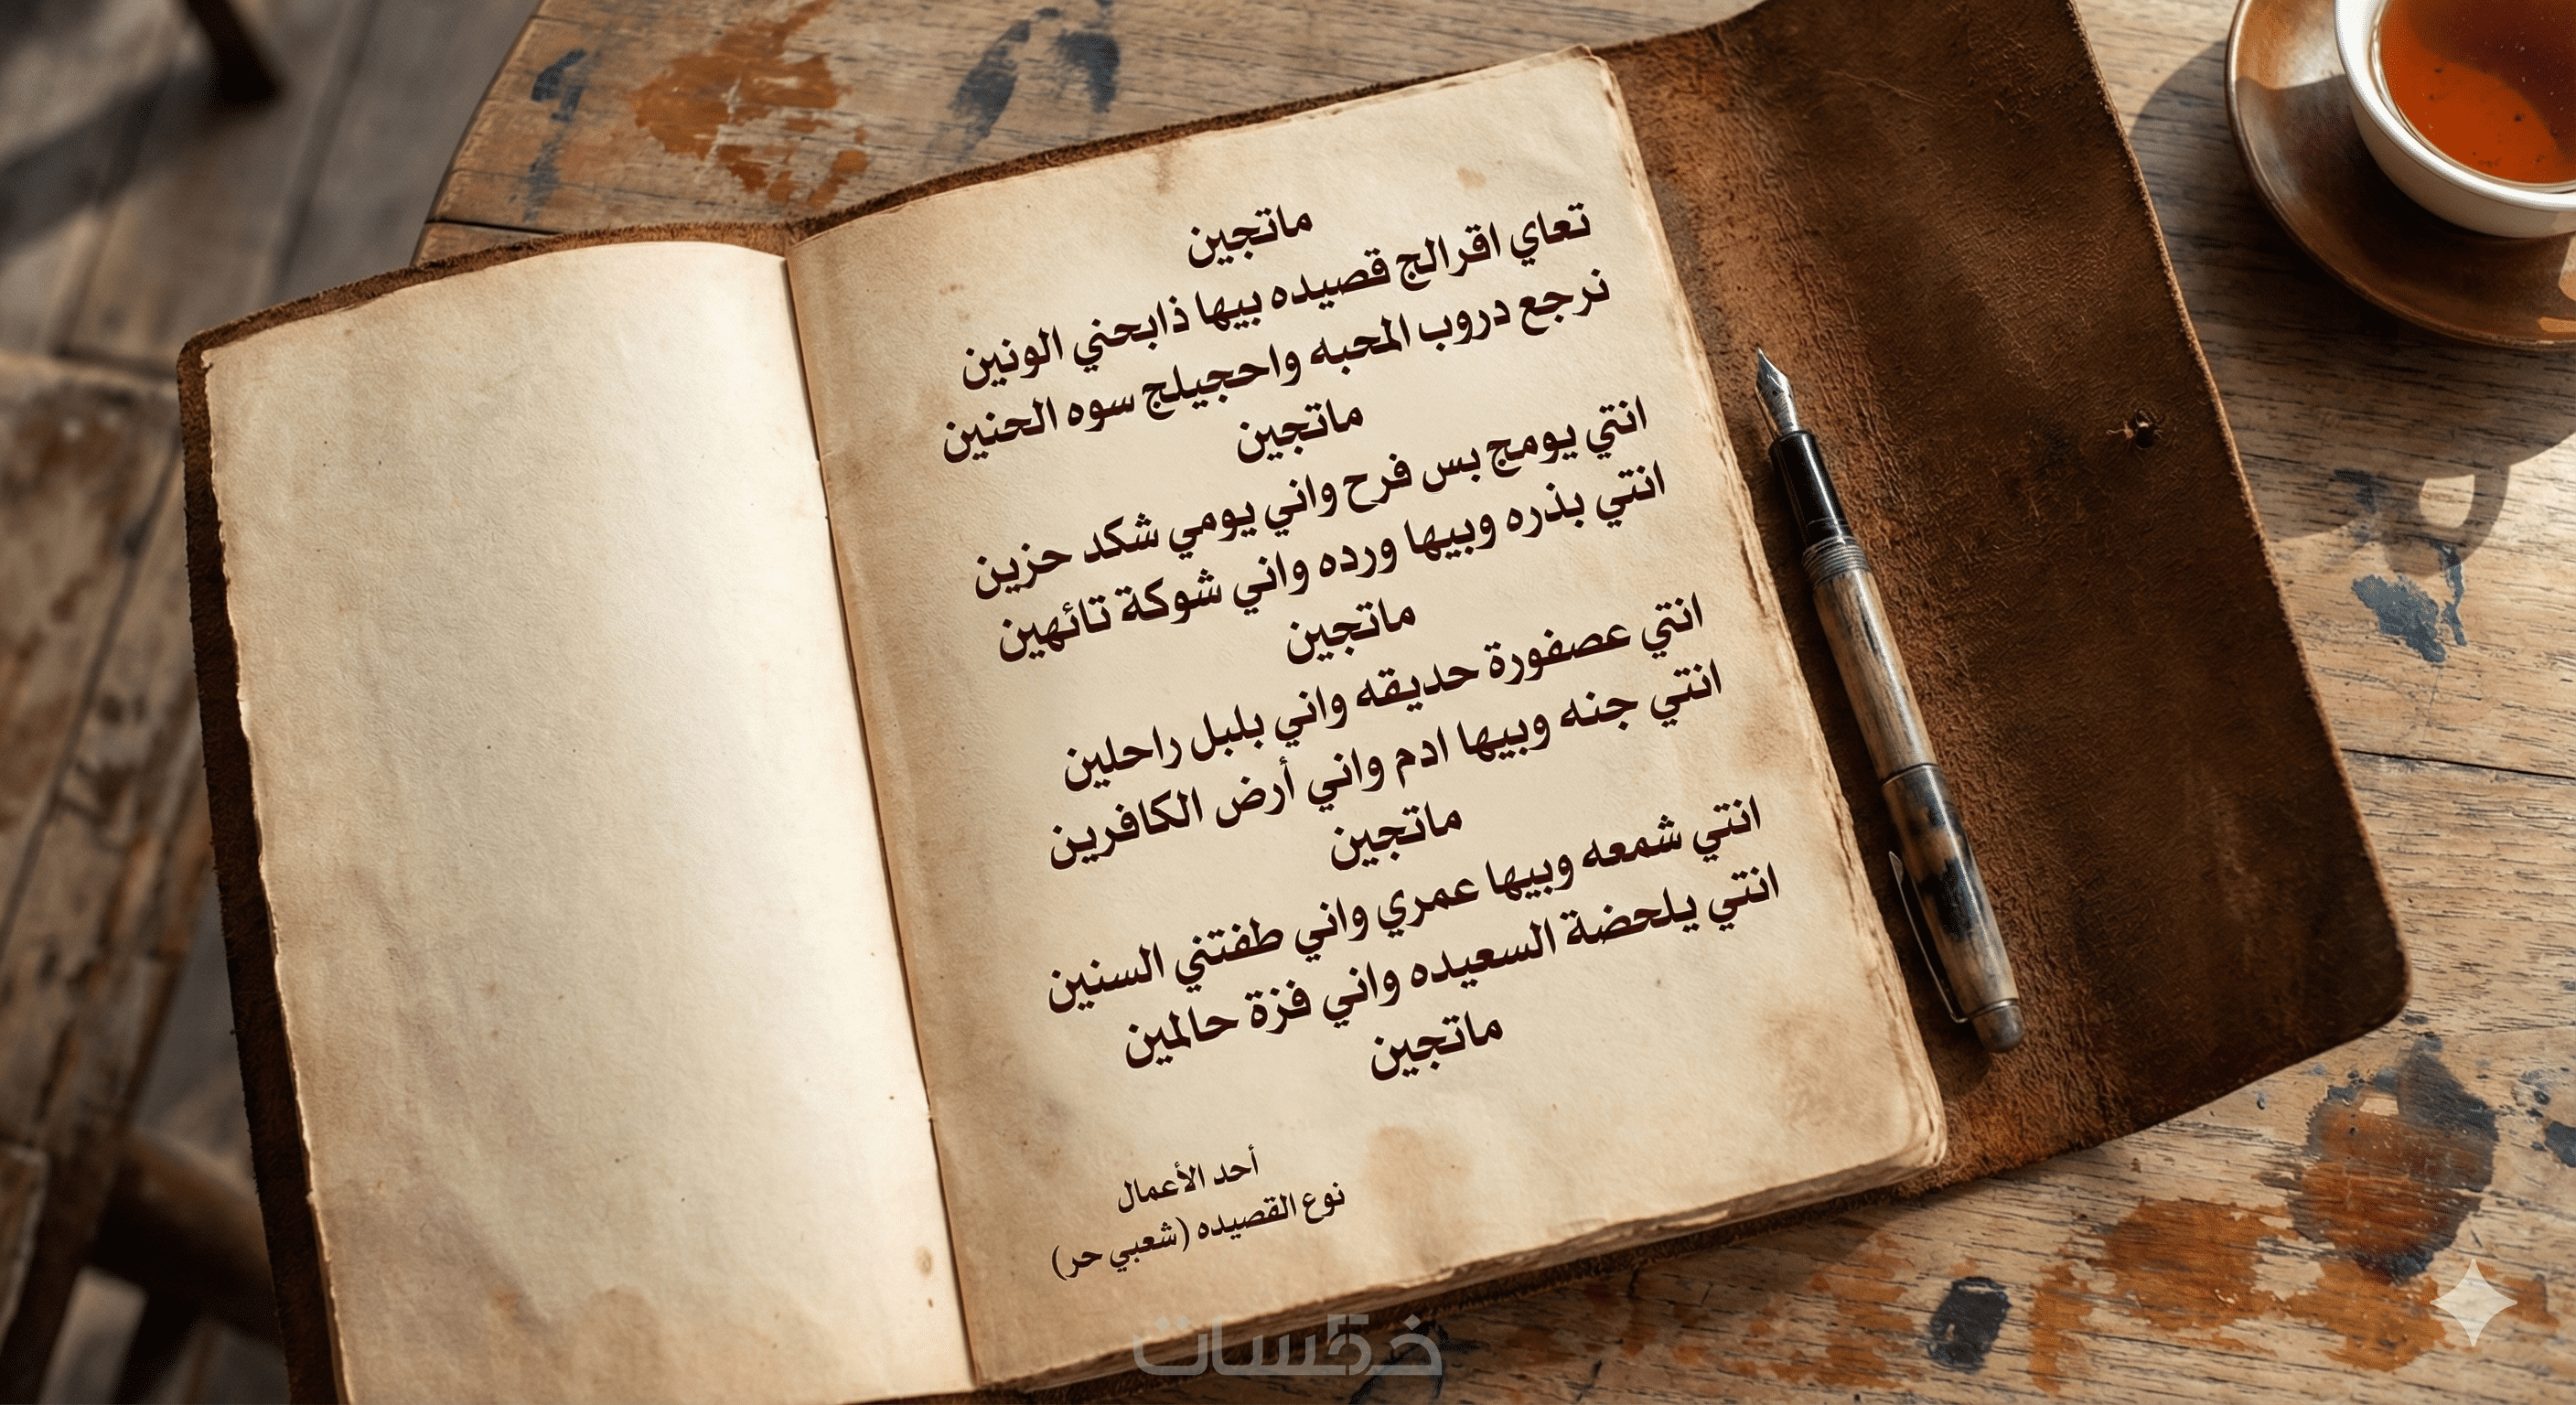 ماتجين
تعاي اقرالج قصيده بيها ذابحني الونين
نرجع دروب المحبه واحجيلج سوه الحنين
ماتجين
انتي يومج بس فرح واني يومي شكد حزين
انتي بذره وبيها ورده واني شوكة تائهين
ماتجين
انتي عصفورة حديقه واني بلبل راحلين
انتي جنه وبيها ادم واني أرض الكافرين
ماتجين
انتي شمعه وبيها عمري واني طفتني السنين
انتي يلحضة السعيده واني فزة حالمين
ماتجين
أحد الأعمال
نوع القصيده (شعبي حر)
خمسات